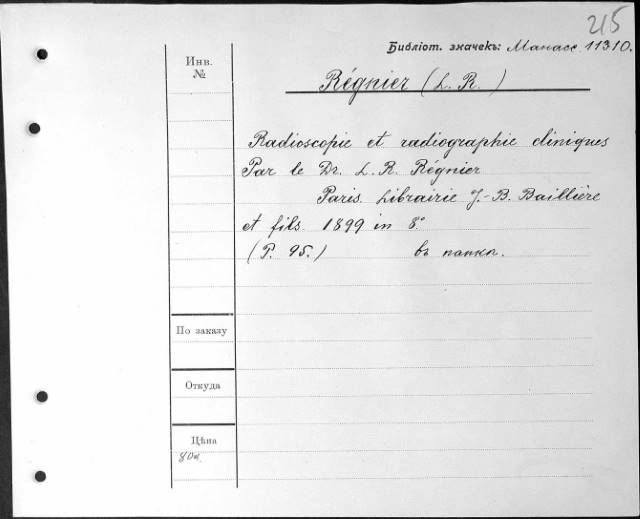 215
Библіот. значекъ: Манасс. 11310.
Инв.
№
Régnier (L. R.)
Radioscopie et radiographie cliniques
Par le Dr. L. R. Régnier
Paris. Librairie J.-B. Baillière
et fils. 1899 in 8°
(P. 95.) въ папкл.
По заказу
Откуда
Цѣна
80к.